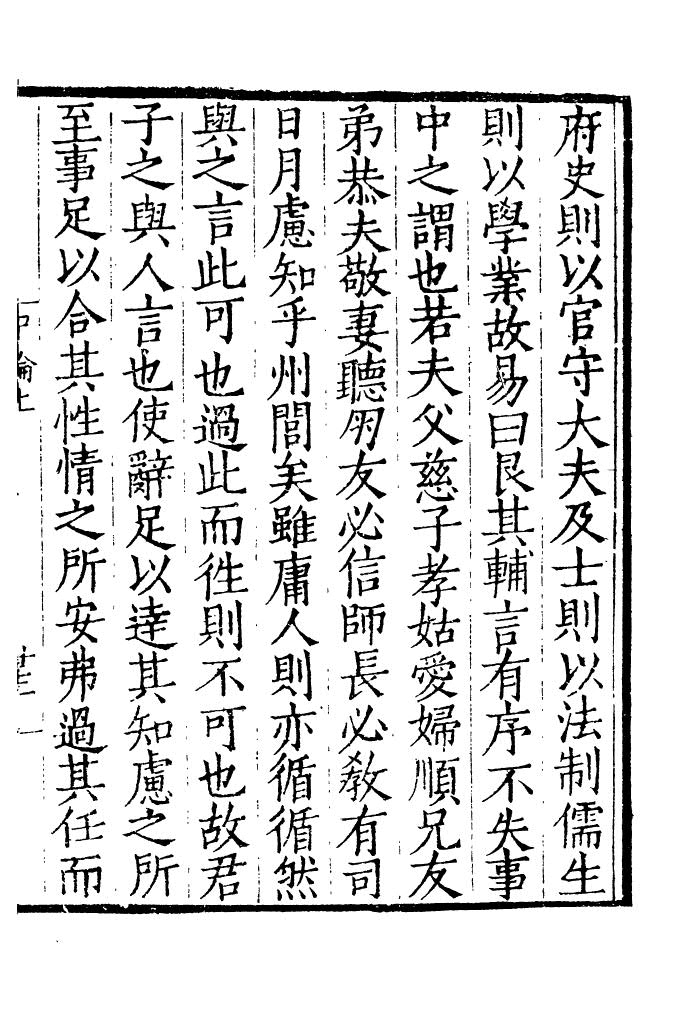 府史則以官守大夫及士則以法制儒生
則以學業故易曰艮其輔言有序不失事
中之謂也若夫父慈子孝姑愛婦順兄友
弟恭夫敬妻聽朋友必信師長必教有司
日月慮知乎州閭矣雖庸人則亦循循然
與之言此可也過此而徃則不可也故君
子之與人言也使辭足以達其知慮之所
至事足以合其性情之所安弗過其任而